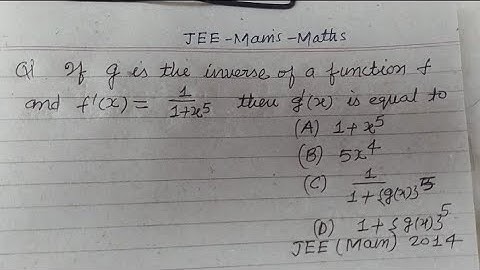 JEE-Mains-Maths
Q1 If g is the inverse of a function f
and f'(x) = 1/(1+x^5) then g'(x) is equal to
(A) 1+x^5
(B) 5x^4
(C) 1/(1+{g(x)}^5)
(D) 1+{g(x)}^5
JEE (Main) 2014